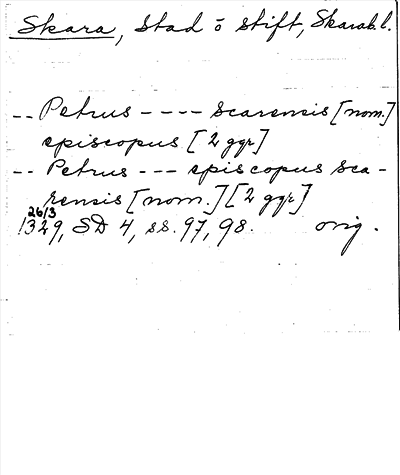 Skara, Stad o stift, Skarab.l.
-- Petrus ---- Scarensis [nom.]
episcopus [2 ggr]
-- Petrus --- episcopus Sca-
rensis [nom.] [2 ggr]
26/3
1329, SD 4, ss. 97, 98. orig.